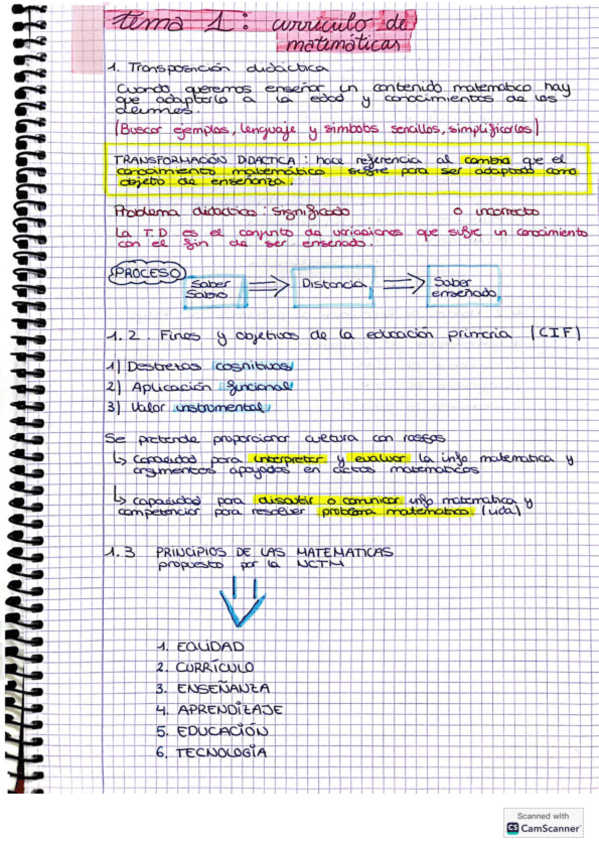 tema 1: currículo de
matemáticas
1. Transposición didáctica
Cuando queremos enseñar un contenido matemático hay
que adaptarlo a la edad y conocimientos de los
alumnos.
(Buscar ejemplos, lenguaje y símbolos sencillos, simplificarlos)
TRANSFORMACIÓN DIDÁCTICA: hace referencia al cambio que el
conocimiento matemático sufre para ser adaptado como
objeto de enseñanza.
Problema didáctico: Significado o incorrecto
La T.D es el conjunto de variaciones que sufre un conocimiento
con el fin de ser enseñado.
PROCESO
Saber
Sabio
⇒ Distancia ⇒
Saber
enseñado
1.2. Fines y objetivos de la educación primaria (CIF)
1) Destrezas cognitivas
2) Aplicación funcional
3) Valor instrumental
Se pretende proporcionar cultura con rasgos
↳ Capacidad para interpretar y evaluar la info matemática y
argumentos apoyados en datos matemáticos
↳ capacidad para discutir o comunicar info matemática y
competencia para resolver problema matemático (vida)
1.3 PRINCIPIOS DE LAS MATEMATICAS
propuesto por la NCTM
1. EQUIDAD
2. CURRÍCULO
3. ENSEÑANZA
4. APRENDIZAJE
5. EDUCACIÓN
6. TECNOLOGÍA
Scanned with
CS CamScanner